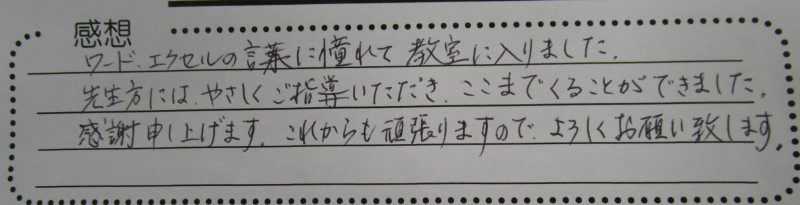 感想
ワード、エクセルの言葉に憧れて教室に入りました。
先生方には、やさしくご指導いただき、ここまでくることができました。
感謝申し上げます。これからも頑張りますので、よろしくお願い致します。